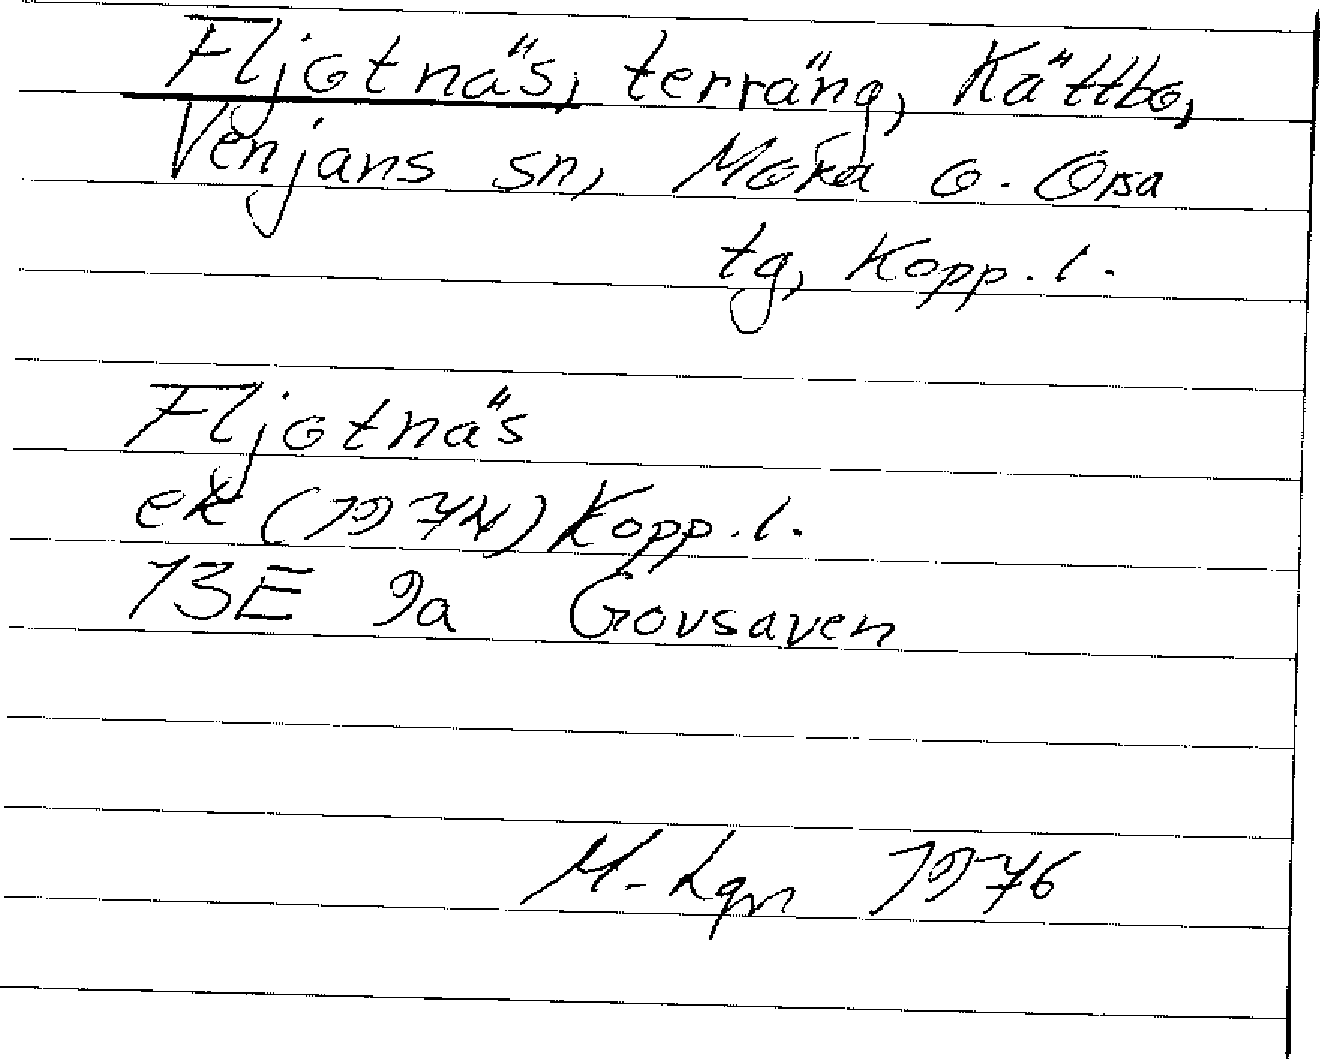 Fljotnäs, terräng, Kättbo,
Venjans sn, Mora o. Orsa
tg, Kopp. l.
Fljotnäs
ek (1974) Kopp. l.
13E 9a Govsaven
M-Lgn 1976